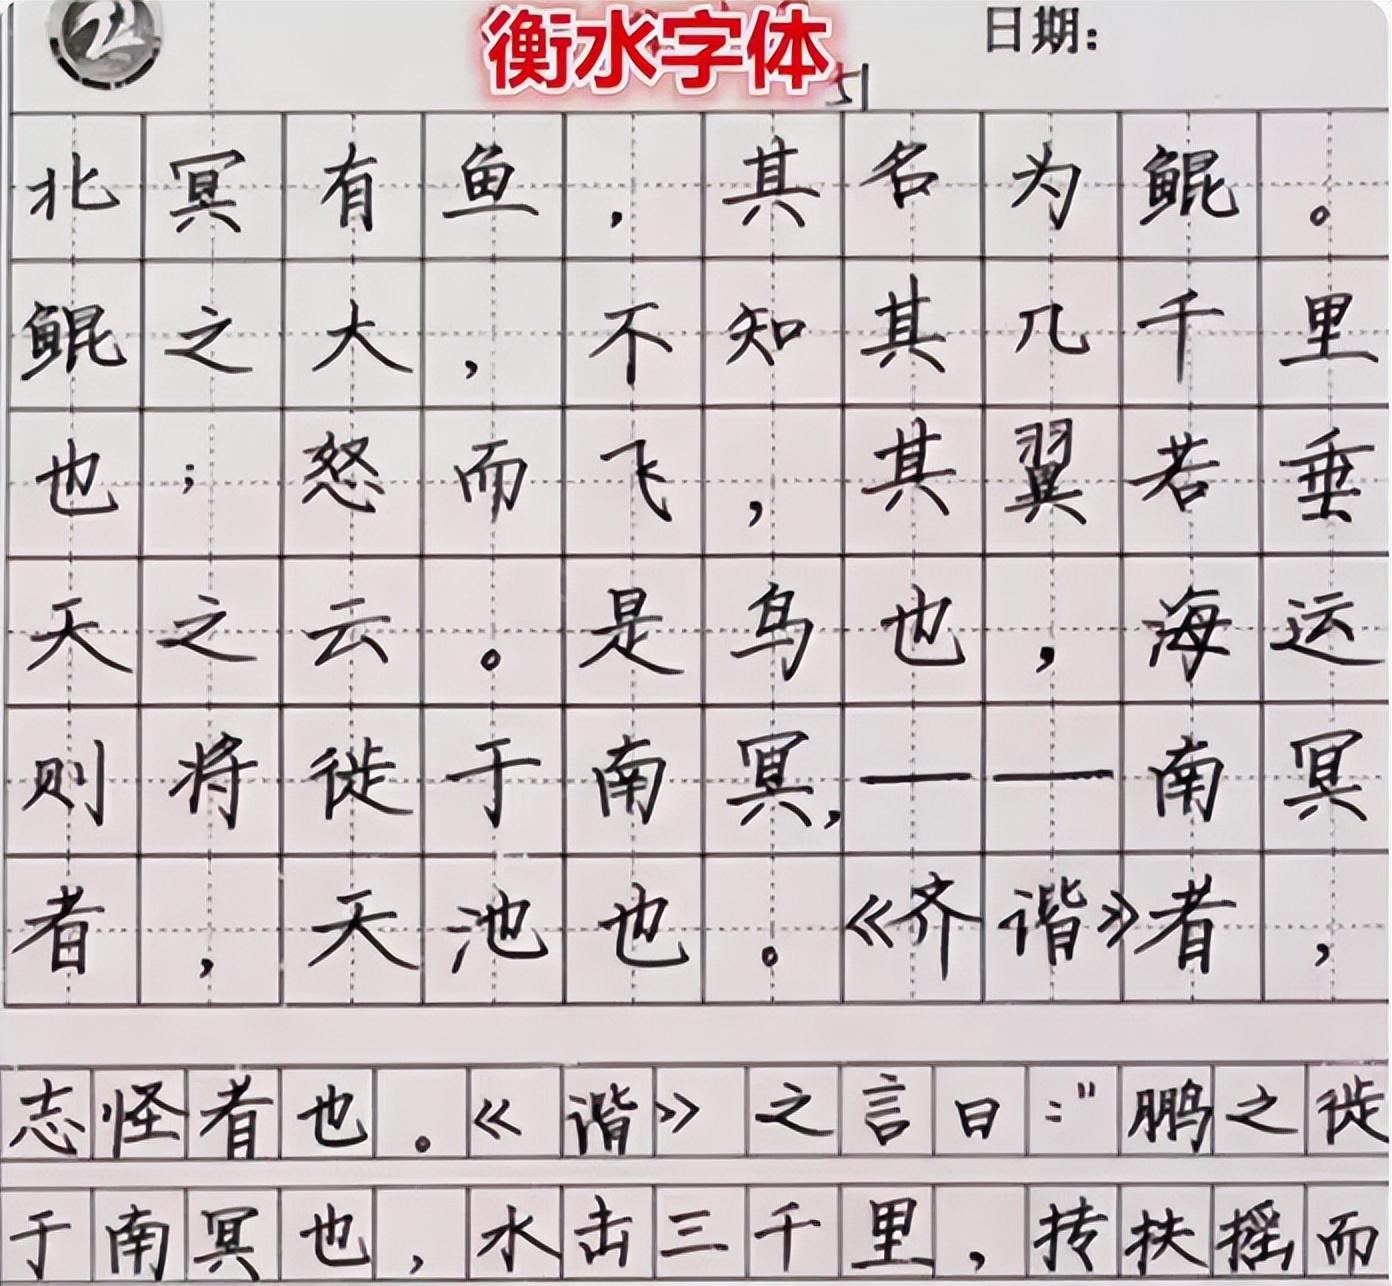 衡水字体
日期:
北冥有鱼,其名为鲲。
鲲之大,不知其几千里
也;怒而飞,其翼若垂
天之云。是鸟也,海运
则将徙于南冥,——南冥
者,天池也。《齐谐》者,
志怪者也。《谐》之言曰:"鹏之徙
于南冥也,水击三千里,抟扶摇而